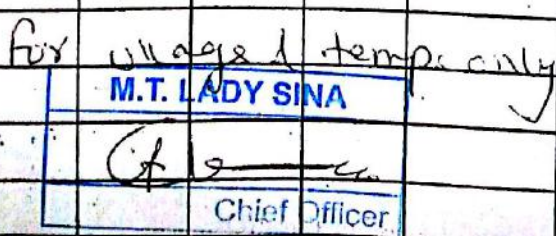 For ullage & temp. only
M.T. LADY SINA
Chief Officer